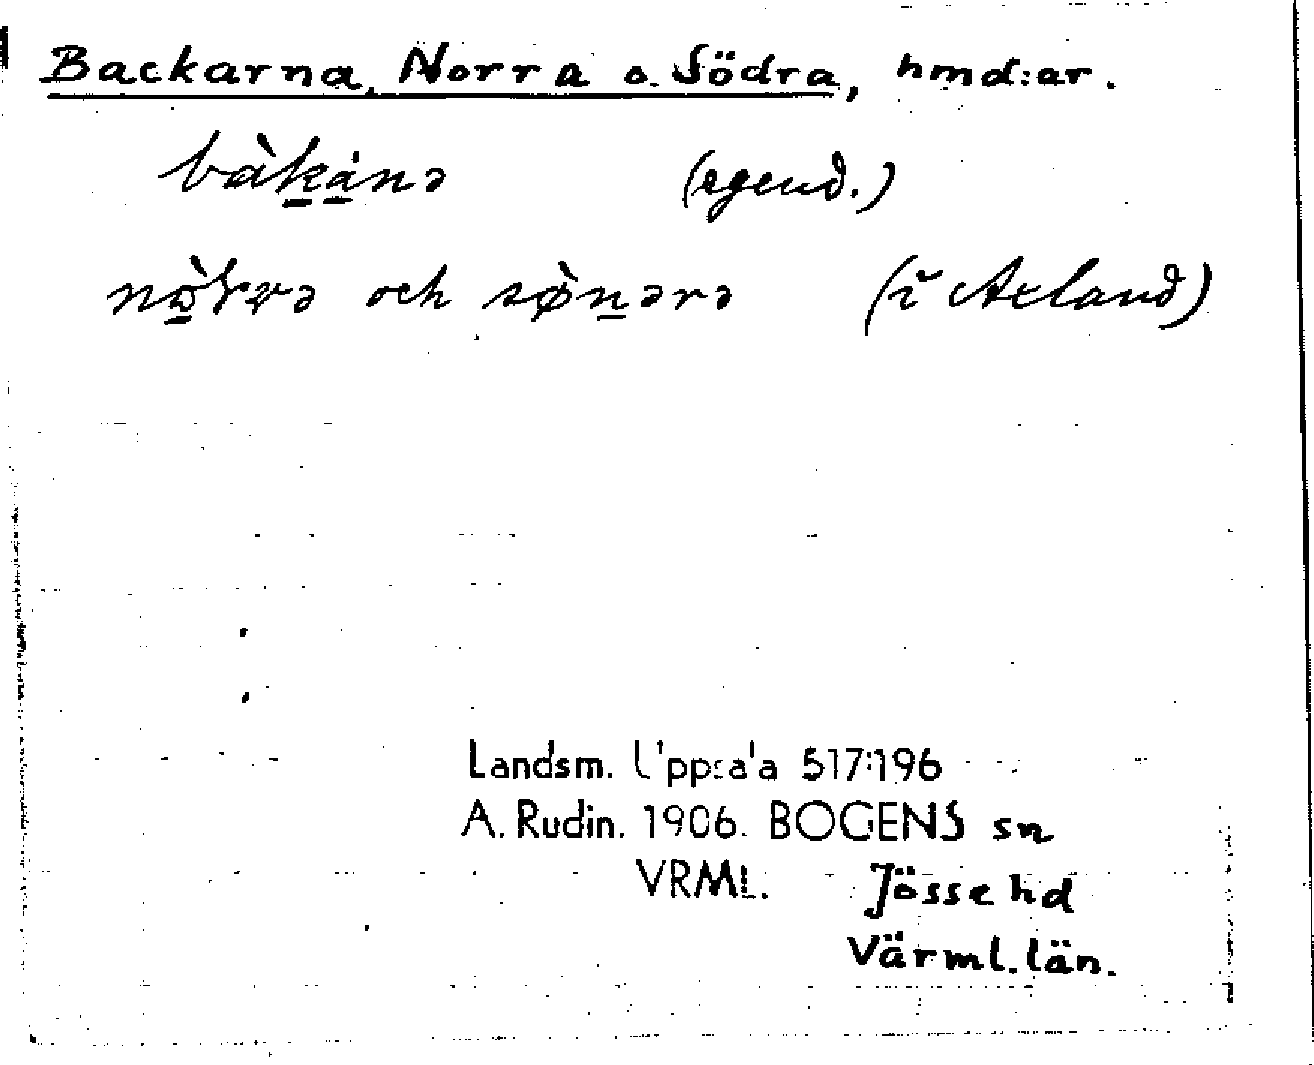 Backarna, Norra o. Södra, hmd:ar.
bàkànə (egend.)
nò̱rrə och sø̀nərə (i Axland)
Landsm. Uppsala 517:196
A. Rudin. 1906. BOGENS sn
VRML. Jösse hd
Värml. län.